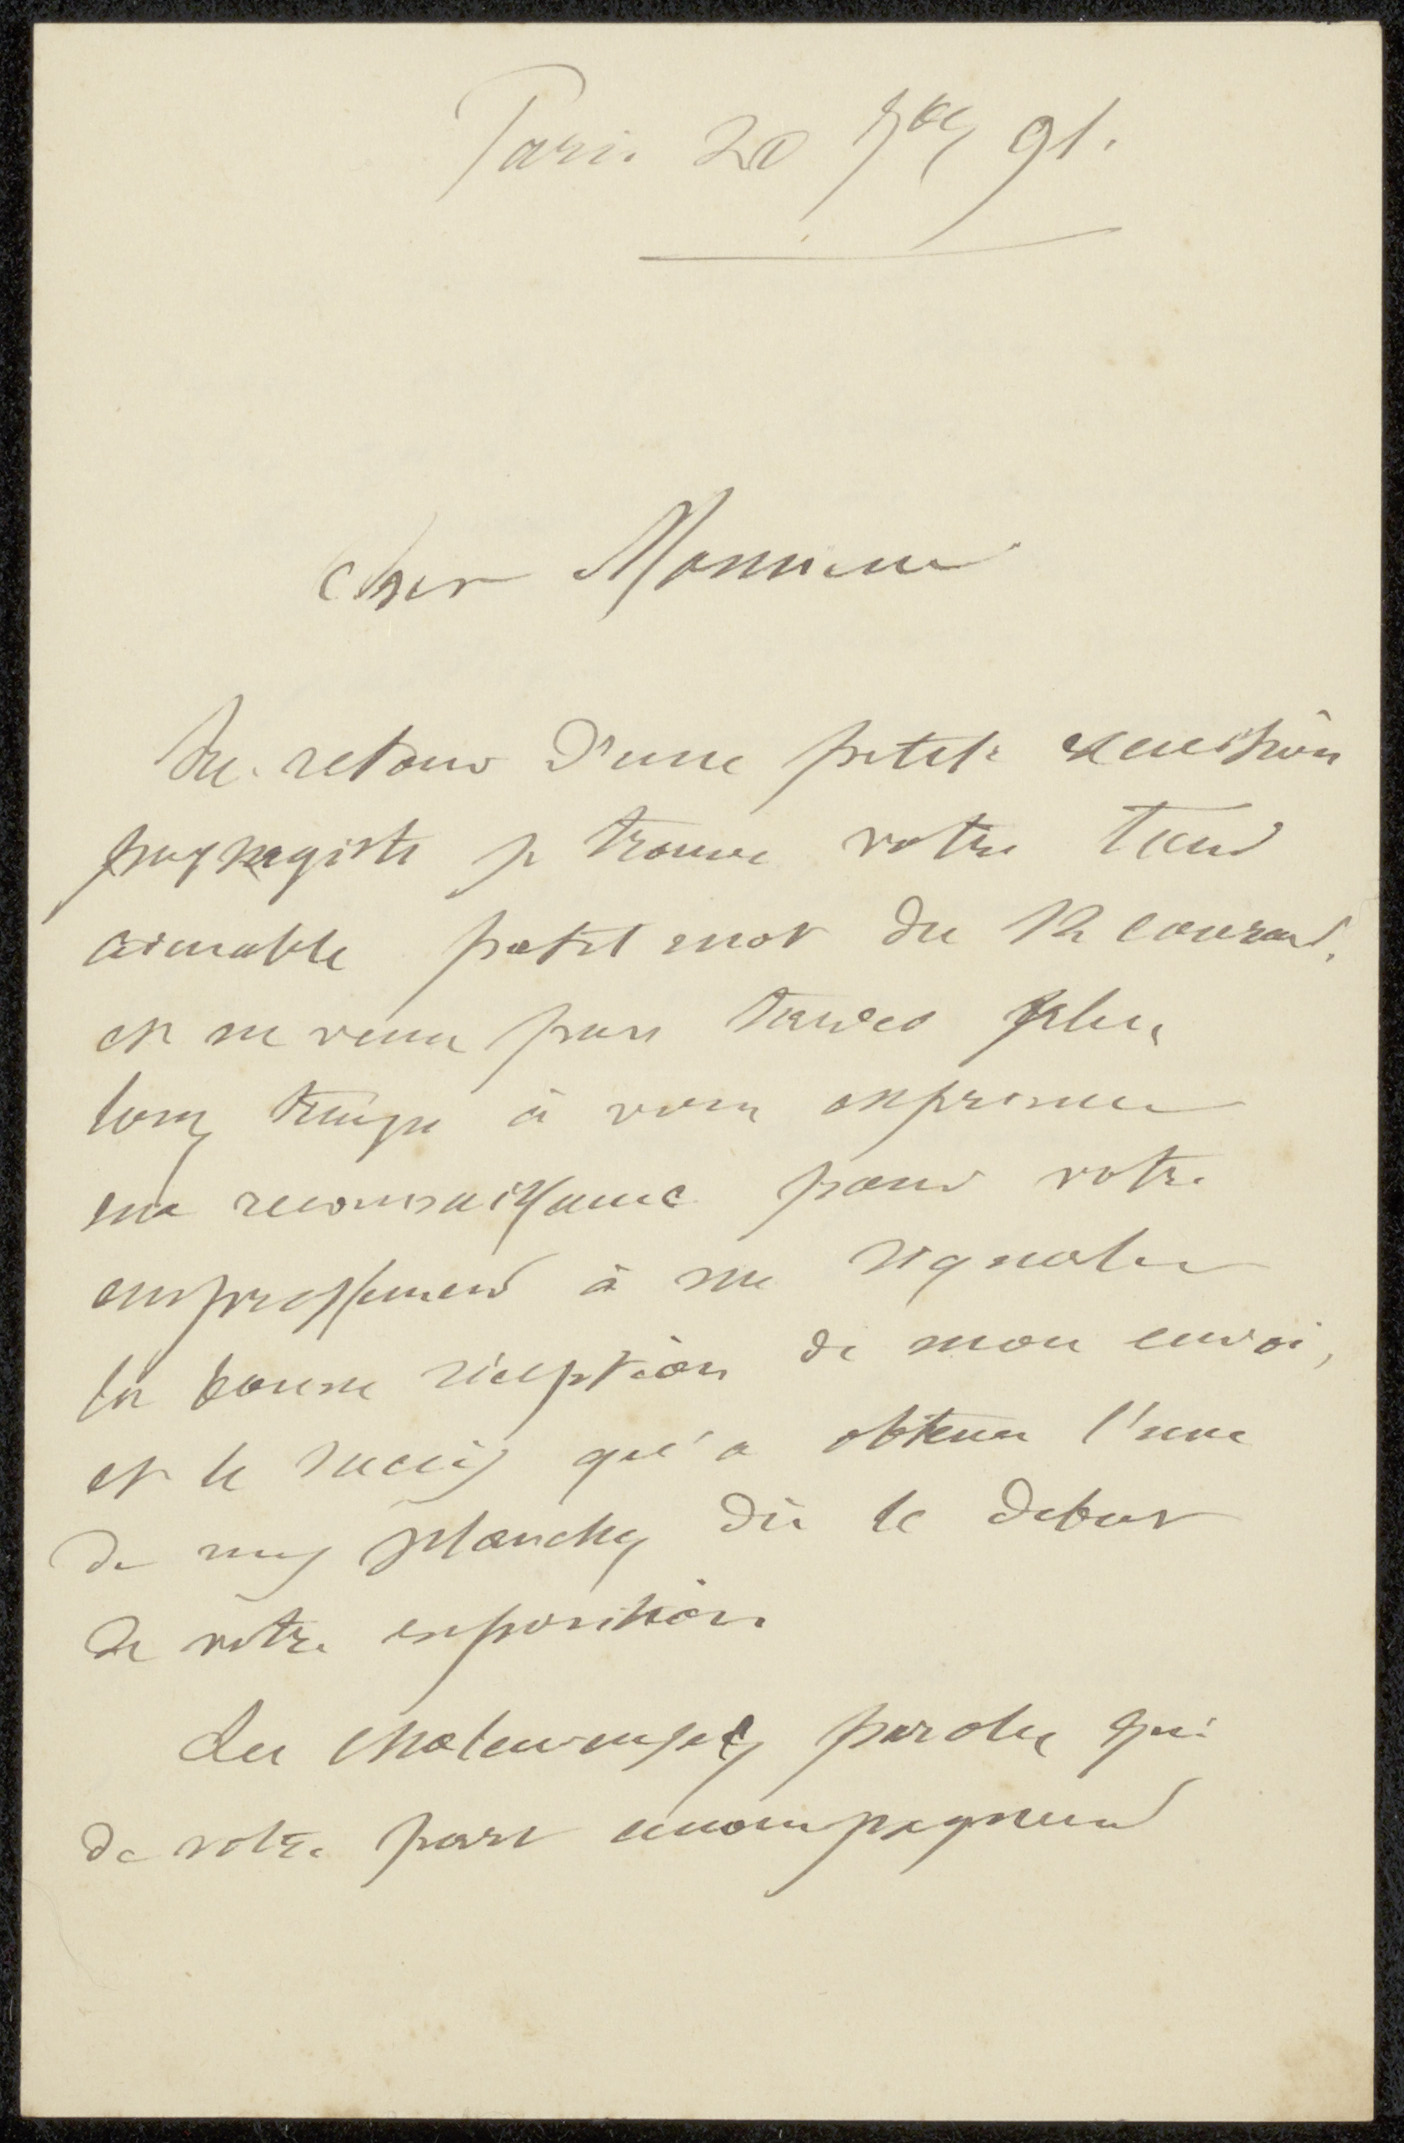 Paris 20 7bre 91.
Cher Monsieur
Au retour d'une petite excursion
paysagiste je trouve votre tant
aimable petit mot du 12 courant.
et ne veux pas tarder plus
long temps à vous exprimer
ma reconnaissance pour votre
empressement à me signaler
la bonne réception de mon envoi,
et le succès qu'a obtenu l'une
de mes planches dès le debut
de votre exposition.
Les chaleureuses paroles qui
de votre part accompagnent